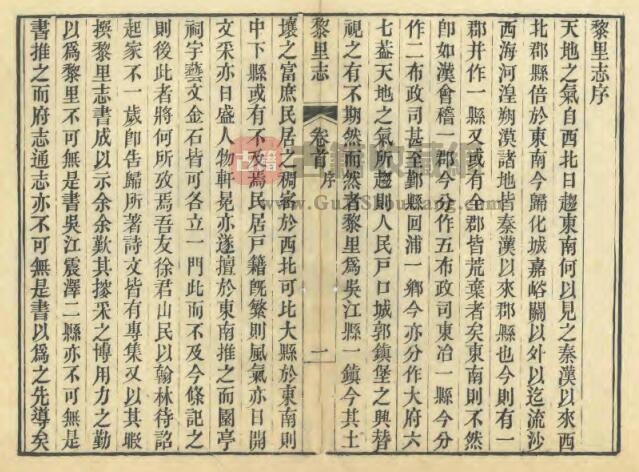 黎里志序
天地之氣自西北日趨東南何以見之秦漢以來西
北郡縣倍於東南今歸化城嘉峪關以外以迄流沙
西海河湟朔漠諸地皆秦漢以來郡縣也今則有一
郡并作一縣又或有全郡皆荒棄者矣東南則不然
卽如漢會稽一郡今分作五布政司東冶一縣今分
作二布政司甚至鄞縣回浦一鄉今亦分作大府六
七蓋天地之氣所趨則人民戸口城郭鎮堡之興替
視之有不期然而然者黎里爲吳江縣一鎮今其土
黎里志
卷首 序
一
壤之富庶民居之稠密於西北可比大縣於東南則
中下縣或有不及焉民居戸籍旣繁則風氣亦日開
文采亦日盛人物軒冕亦遂擅於東南推之而園亭
祠宇藝文金石皆可各立一門此而不及今條記之
則後此者將何所攷焉吾友徐君山民以翰林待詔
起家不一歲卽告歸所著詩文皆有專集又以其暇
撰黎里志書成以示余余歎其搜采之博用力之勤
以爲黎里不可無是書吳江震澤二縣亦不可無是
書推之而府志通志亦不可無是書以爲之先導矣
古籍
www.GuJiShouCang.com